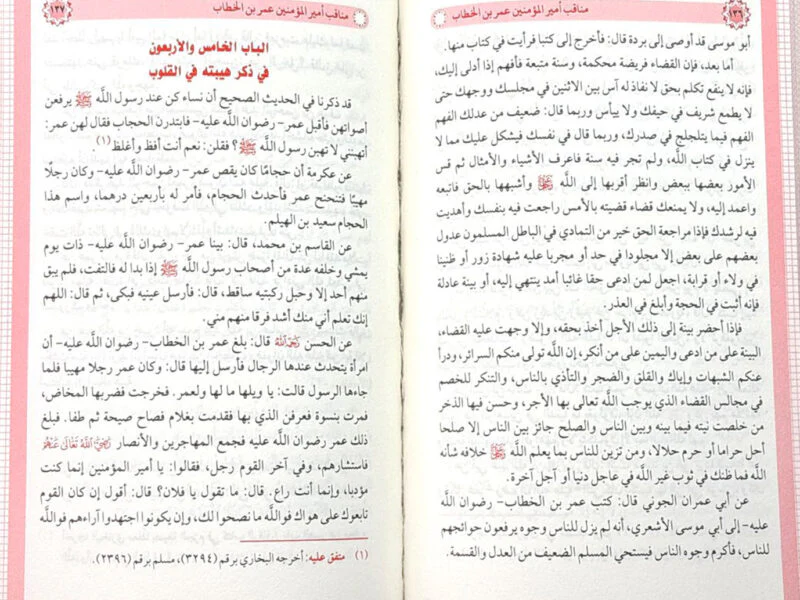 مناقب أمير المؤمنين عمر بن الخطاب
١٣٦
أبو موسى قد أوصى إلى بردة قال: فأخرج إلى كتبا فرأيت في كتاب منها.
أما بعد، فإن القضاء فريضة محكمة، وسنة متبعة فأفهم إذا أدلى إليك،
فإنه لا ينفع تكلم بحق لا نفاذ له آس بين الاثنين في مجلسك ووجهك حتى
لا يطمع شريف في حيفك ولا ييأس وربما قال: ضعيف من عدلك الفهم
الفهم فيما يتلجلج في صدرك، وربما قال في نفسك فيشكل عليك مما لا
ينزل في كتاب اللَّه، ولم تجر فيه سنة فاعرف الأشياء والأمثال ثم قس
الأمور بعضها ببعض وانظر أقربها إلى اللَّه وأشبهها بالحق فاتبعه
واعمد إليه، ولا يمنعك قضاء قضيته بالأمس راجعت فيه بنفسك وأهديت
فيه لرشدك فإذا مراجعة الحق خير من التمادي في الباطل المسلمون عدول
بعضهم على بعض إلا مجلودا في حد أو مجربا عليه شهادة زور أو ظنينا
في ولاء أو قرابة، اجعل لمن ادعى حقا غائبا أمد ينتهي إليه، أو بينة عادلة
فإنه أثبت في الحجة وأبلغ في العذر.
فإذا أحضر بينة إلى ذلك الأجل أخذ بحقه، وإلا وجهت عليه القضاء،
البينة على من ادعى واليمين على من أنكر، إن اللَّه تولى منكم السرائر، ودرأ
عنكم الشبهات وإياك والقلق والضجر والتأذي بالناس، والتنكر للخصم
في مجالس القضاء الذي يوجب اللَّه تعالى بها الأجر، وحسن فيها الذخر
من خلصت نيته فيما بينه وبين الناس والصلح جائز بين الناس إلا صلحا
أحل حراما أو حرم حلالا، ومن تزين للناس بما يعلم اللَّه خلافه شأنه
اللَّه فما ظنك في ثوب غير اللَّه في عاجل دنيا أو آجل آخرة.
عن أبي عمران الجوني قال: كتب عمر بن الخطاب- رضوان اللَّه
عليه- إلى أبي موسى الأشعري، أنه لم يزل للناس وجوه يرفعون حوائجهم
للناس، فأكرم وجوه الناس فيستحي المسلم الضعيف من العدل والقسمة.
مناقب أمير المؤمنين عمر بن الخطاب
١٣٧
الباب الخامس والأربعون
في ذكر هيبته في القلوب
قد ذكرنا في الحديث الصحيح أن نساء كن عند رسول اللَّه ﷺ يرفعن
أصواتهن فأقبل عمر- رضوان اللَّه عليه- فابتدرن الحجاب فقال لهن عمر:
أتهبنني لا تهبن رسول اللَّه ﷺ؟ فقلن: نعم أنت أفظ وأغلظ(١).
عن عكرمة أن حجامًا كان يقص عمر- رضوان اللَّه عليه- وكان رجلًا
مهيبًا فتنحنح عمر فأحدث الحجام، فأمر له بأربعين درهما، واسم هذا
الحجام سعيد بن الهيلم.
عن القاسم بن محمد، قال: بينا عمر- رضوان اللَّه عليه- ذات يوم
يمشي وخلفه عدة من أصحاب رسول اللَّه ﷺ إذا بدا له فالتفت، فلم يبق
منهم أحد إلا وحبل ركبتيه ساقط، قال: فأرسل عينيه فبكى، ثم قال: اللهم
إنك تعلم أني منك أشد فرقا منهم مني.
عن الحسن رحمه الله قال: بلغ عمر بن الخطاب- رضوان اللَّه عليه- أن
امرأة يتحدث عندها الرجال فأرسل إليها قال: وكان عمر رجلا مهيبا فلما
جاءها الرسول قالت: يا ويلها ما لها ولعمر. فخرجت فضربها المخاض،
فمرت بنسوة فعرفن الذي بها فقدمت بغلام فصاح صيحة ثم طفا. فبلغ
ذلك عمر رضوان اللَّه عليه فجمع المهاجرين والأنصار رضي الله تعالى عنهم
فاستشارهم، وفي آخر القوم رجل، فقالوا: يا أمير المؤمنين إنما كنت
مؤدبا، وإنما أنت راع. قال: ما تقول يا فلان؟ قال: أقول إن كان القوم
تابعوك على هواك فواللَّه ما نصحوا لك، وإن يكونوا اجتهدوا آراءهم فواللَّه
(١) متفق عليه: أخرجه البخاري برقم (٣٢٩٤)، مسلم برقم (٢٣٩٦).